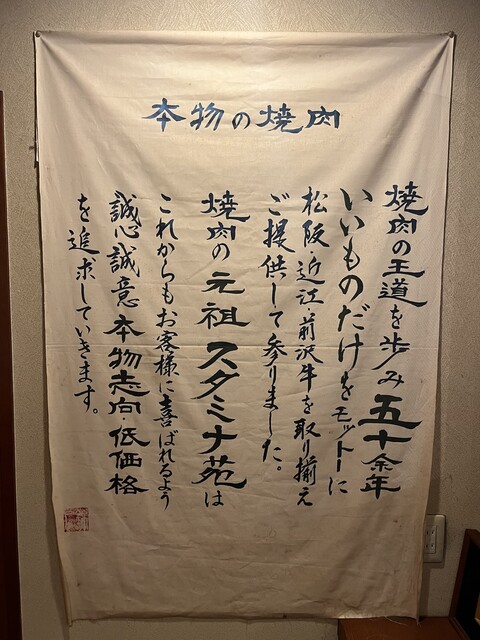 本物の焼肉
焼肉の王道を歩み五十余年
いいものだけをモットーに
松阪、近江、前沢牛を取り揃え
ご提供して参りました。
焼肉の元祖スタミナ苑は
これからもお客様に喜ばれるよう
誠心誠意本物志向・低価格
を追求していきます。